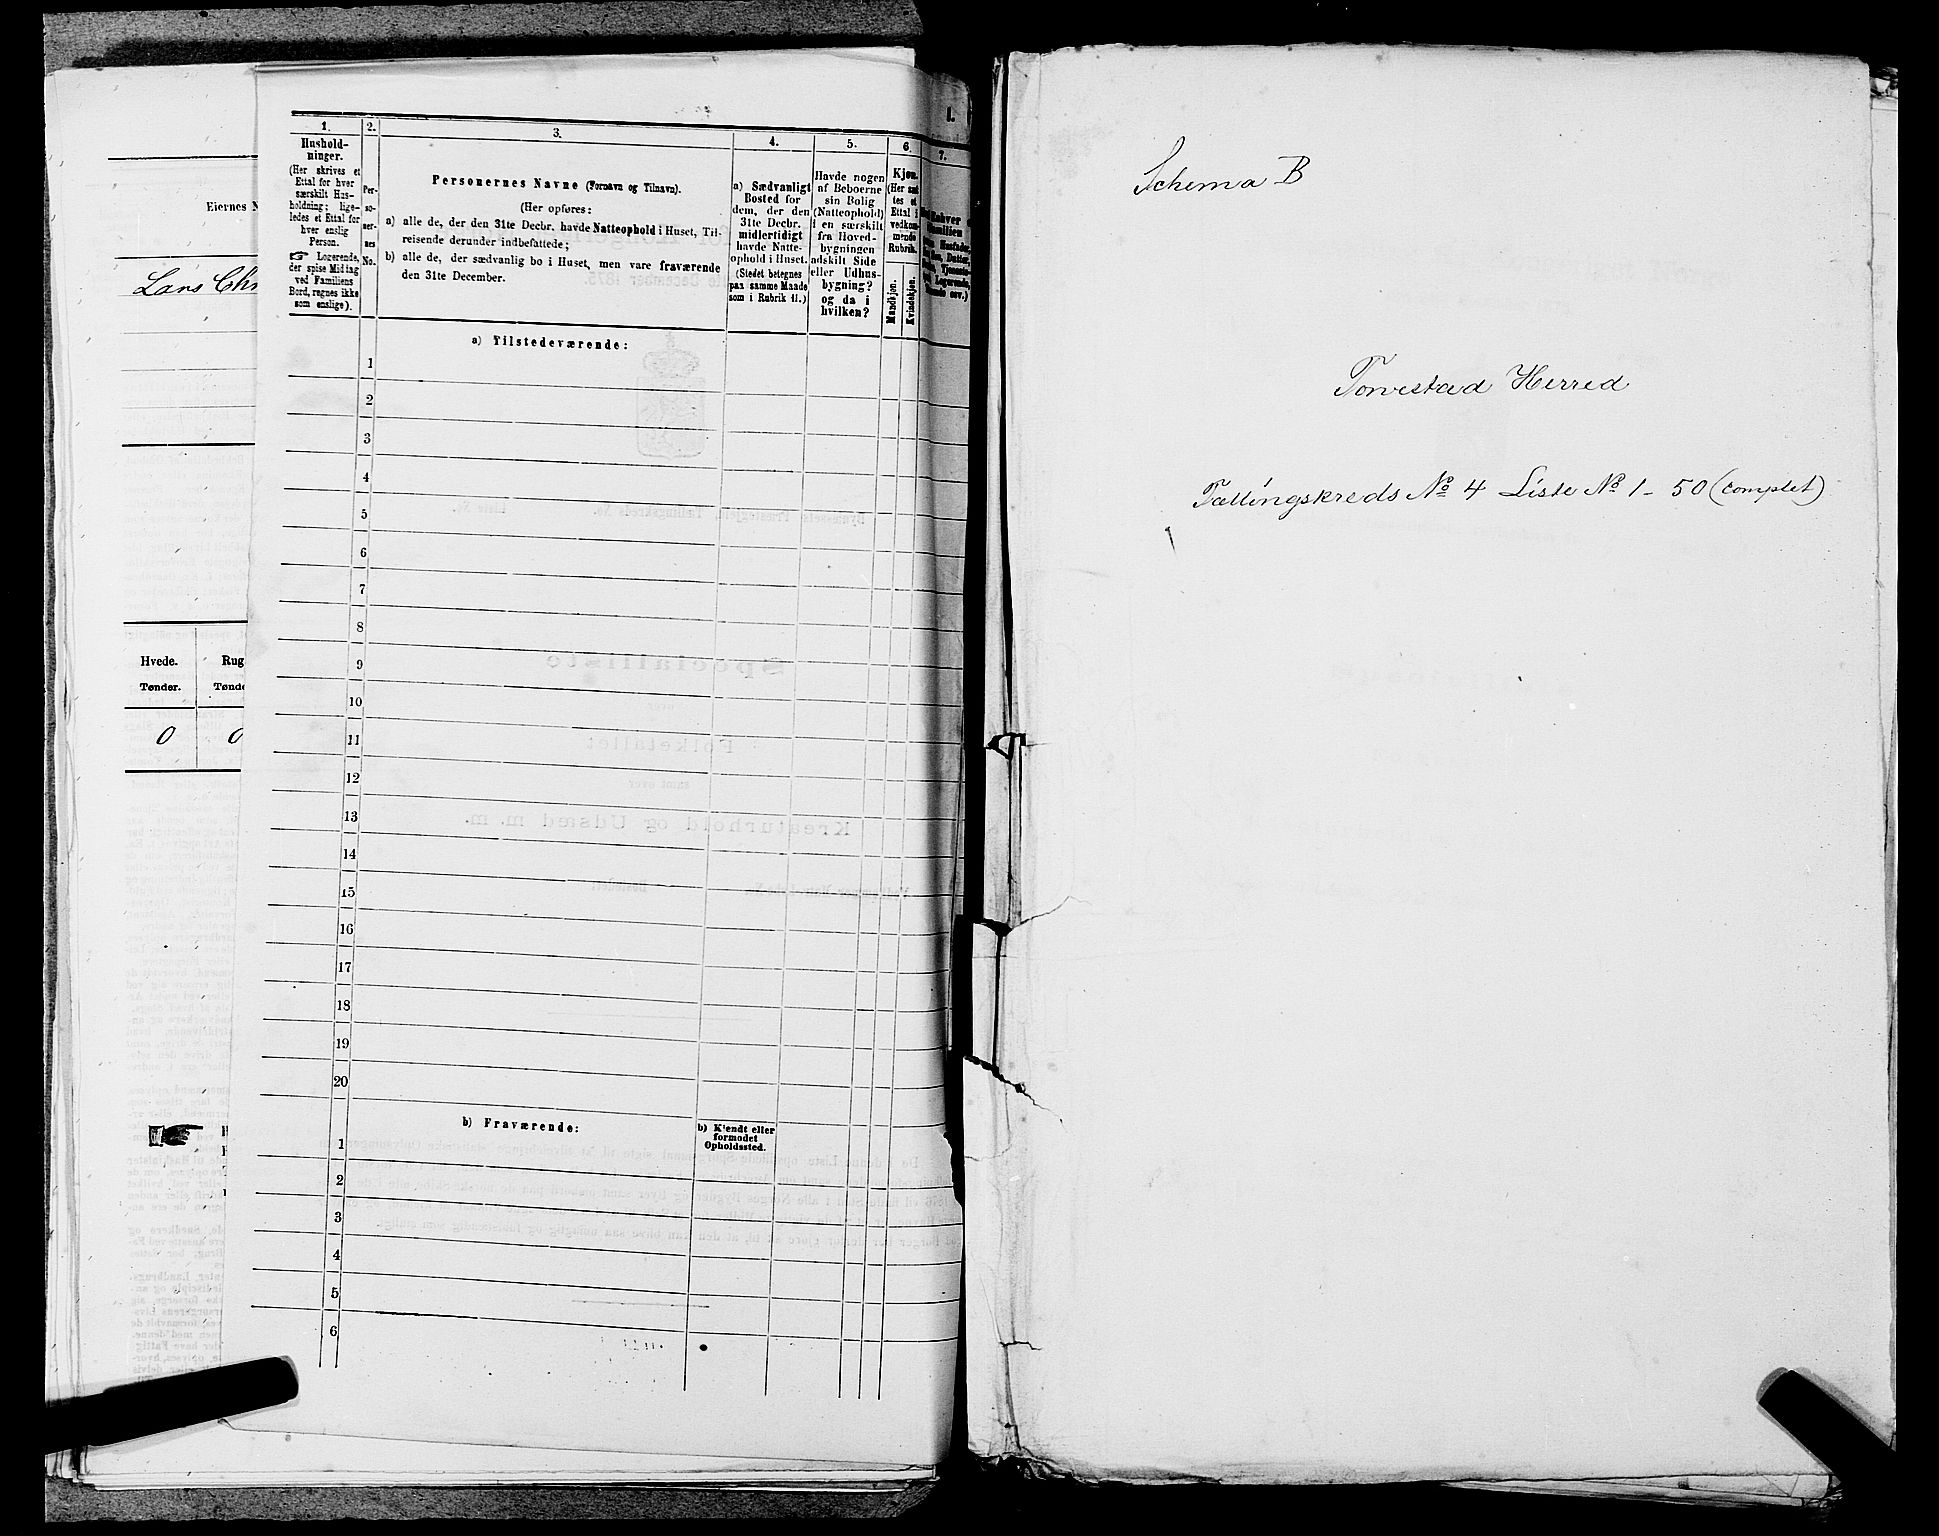 Eiernes N
Lars Chr
Hvede.
Rug
Tønder.
Tønde
0
0
1.
Hushold-
ninger.
(Her skrives et
Ettal for hver
særskilt Hus-
holdning; lige-
ledes et Ettal for
hver enslig
Person.
☞ Logerende,
der spise Middag
ved Familiens
Bord, regnes ikke
som enslige).
2.
Per-
so-
ner-
nes
No.
3.
Personernes Navne (Fornavn og Tilnavn).
(Her opføres:
a) alle de, der den 31te Decbr. havde Natteophold i Huset, Til-
reisende derunder indbefattede;
b) alle de, der sædvanlig bo i Huset, men vare fraværende
den 31te December.
4.
a) Sædvanligt
Bosted for
dem, der den
31te Decbr.
midlertidigt
havde Natte-
ophold i Huset.
(Stedet betegnes
paa samme Maade
som i Rubrik 11.)
5.
Havde nogen
af Beboerne
sin Bolig
(Natteophold)
i en særskilt
fra Hoved-
bygningen
adskilt Side
eller Udhus-
bygning?
og da i
hvilken?
6.
Kjøn.
(Her sæt
tes et
Ettal i
vedkom-
mende
Rubrik.
Mandkjøn.
Kvindekjøn.
1.
7.
a) Tilstedeværende:
1
2
3
4
5
6
7
8
9
10
11
12
13
14
15
16
17
18
19
20
b) Fraværende:
b) Kjendt eller
formodet
Opholdssted.
1
2
3
4
5
6
Schema B
Torvestad Herred
Tællingskreds No 4 Liste No 1 - 50 (complet)